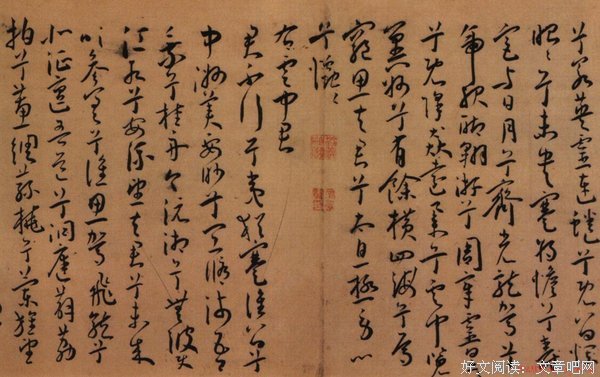 兮若英靈連蜷兮既留爛
昭々兮未央蹇將憺兮壽
宮與日月兮齊光龍駕兮
帝服聊翱游兮周章靈皇
兮既降猋遠舉兮雲中覽
冀州兮有餘橫四海兮焉
窮思夫君兮太息極勞心
兮忡々
右雲中君
君不行兮夷猶蹇誰留兮
中洲美要眇兮宜脩沛吾
乘兮桂舟令沅湘兮無波使
江水兮安流望夫君兮未來
吹參差兮誰思駕飛龍兮
北征邅吾道兮洞庭薜荔
拍兮蕙綢蓀橈兮蘭旌望
好文阅读:文章吧网